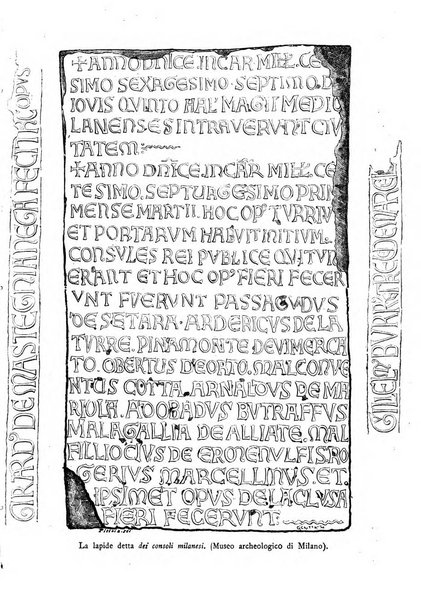 + ANNO DNICE INCAR MILL CE
SIMO SEXAGESIMO SEPTIMO D
IOVIS QUINTO KAL MAGII MEDIO
LANENSES INTRAVERUNT CIVI
TATEM
+ ANNO DNICE INCAR MILL CE
TESIMO SEPTUAGESIMO PRIM
MENSE MARTII HOC OP TURRIU
ET PORTARUM HABUIT INITIUM
CONSULES REI PUBLICE QUI TUM
ERANT ET HOC OP FIERI FECER
UNT FUERUNT PASSAGUADUS
DE SETARA ARDERICUS DE LA
TURRE PINAMONTE DE VIMERCA
TO OBERTUS DE ORTO MALCONVE
NTUS COTTA ARNALDUS DE MA
RIOLA ADOBADUS BUTRAFFUS
MALAGALLIA DE ALLIATE MAL
FILLIOCIUS DE ERMENULFIS RO
GERIUS MARCELLINUS ET
IPSIMET OPUS DE LA CLUSA
FIERI FECERUNT
GIRARD DE MASTEGNIANEGA FECIT HOC OPUS
La lapide detta dei consoli milanesi. (Museo archeologico di Milano).